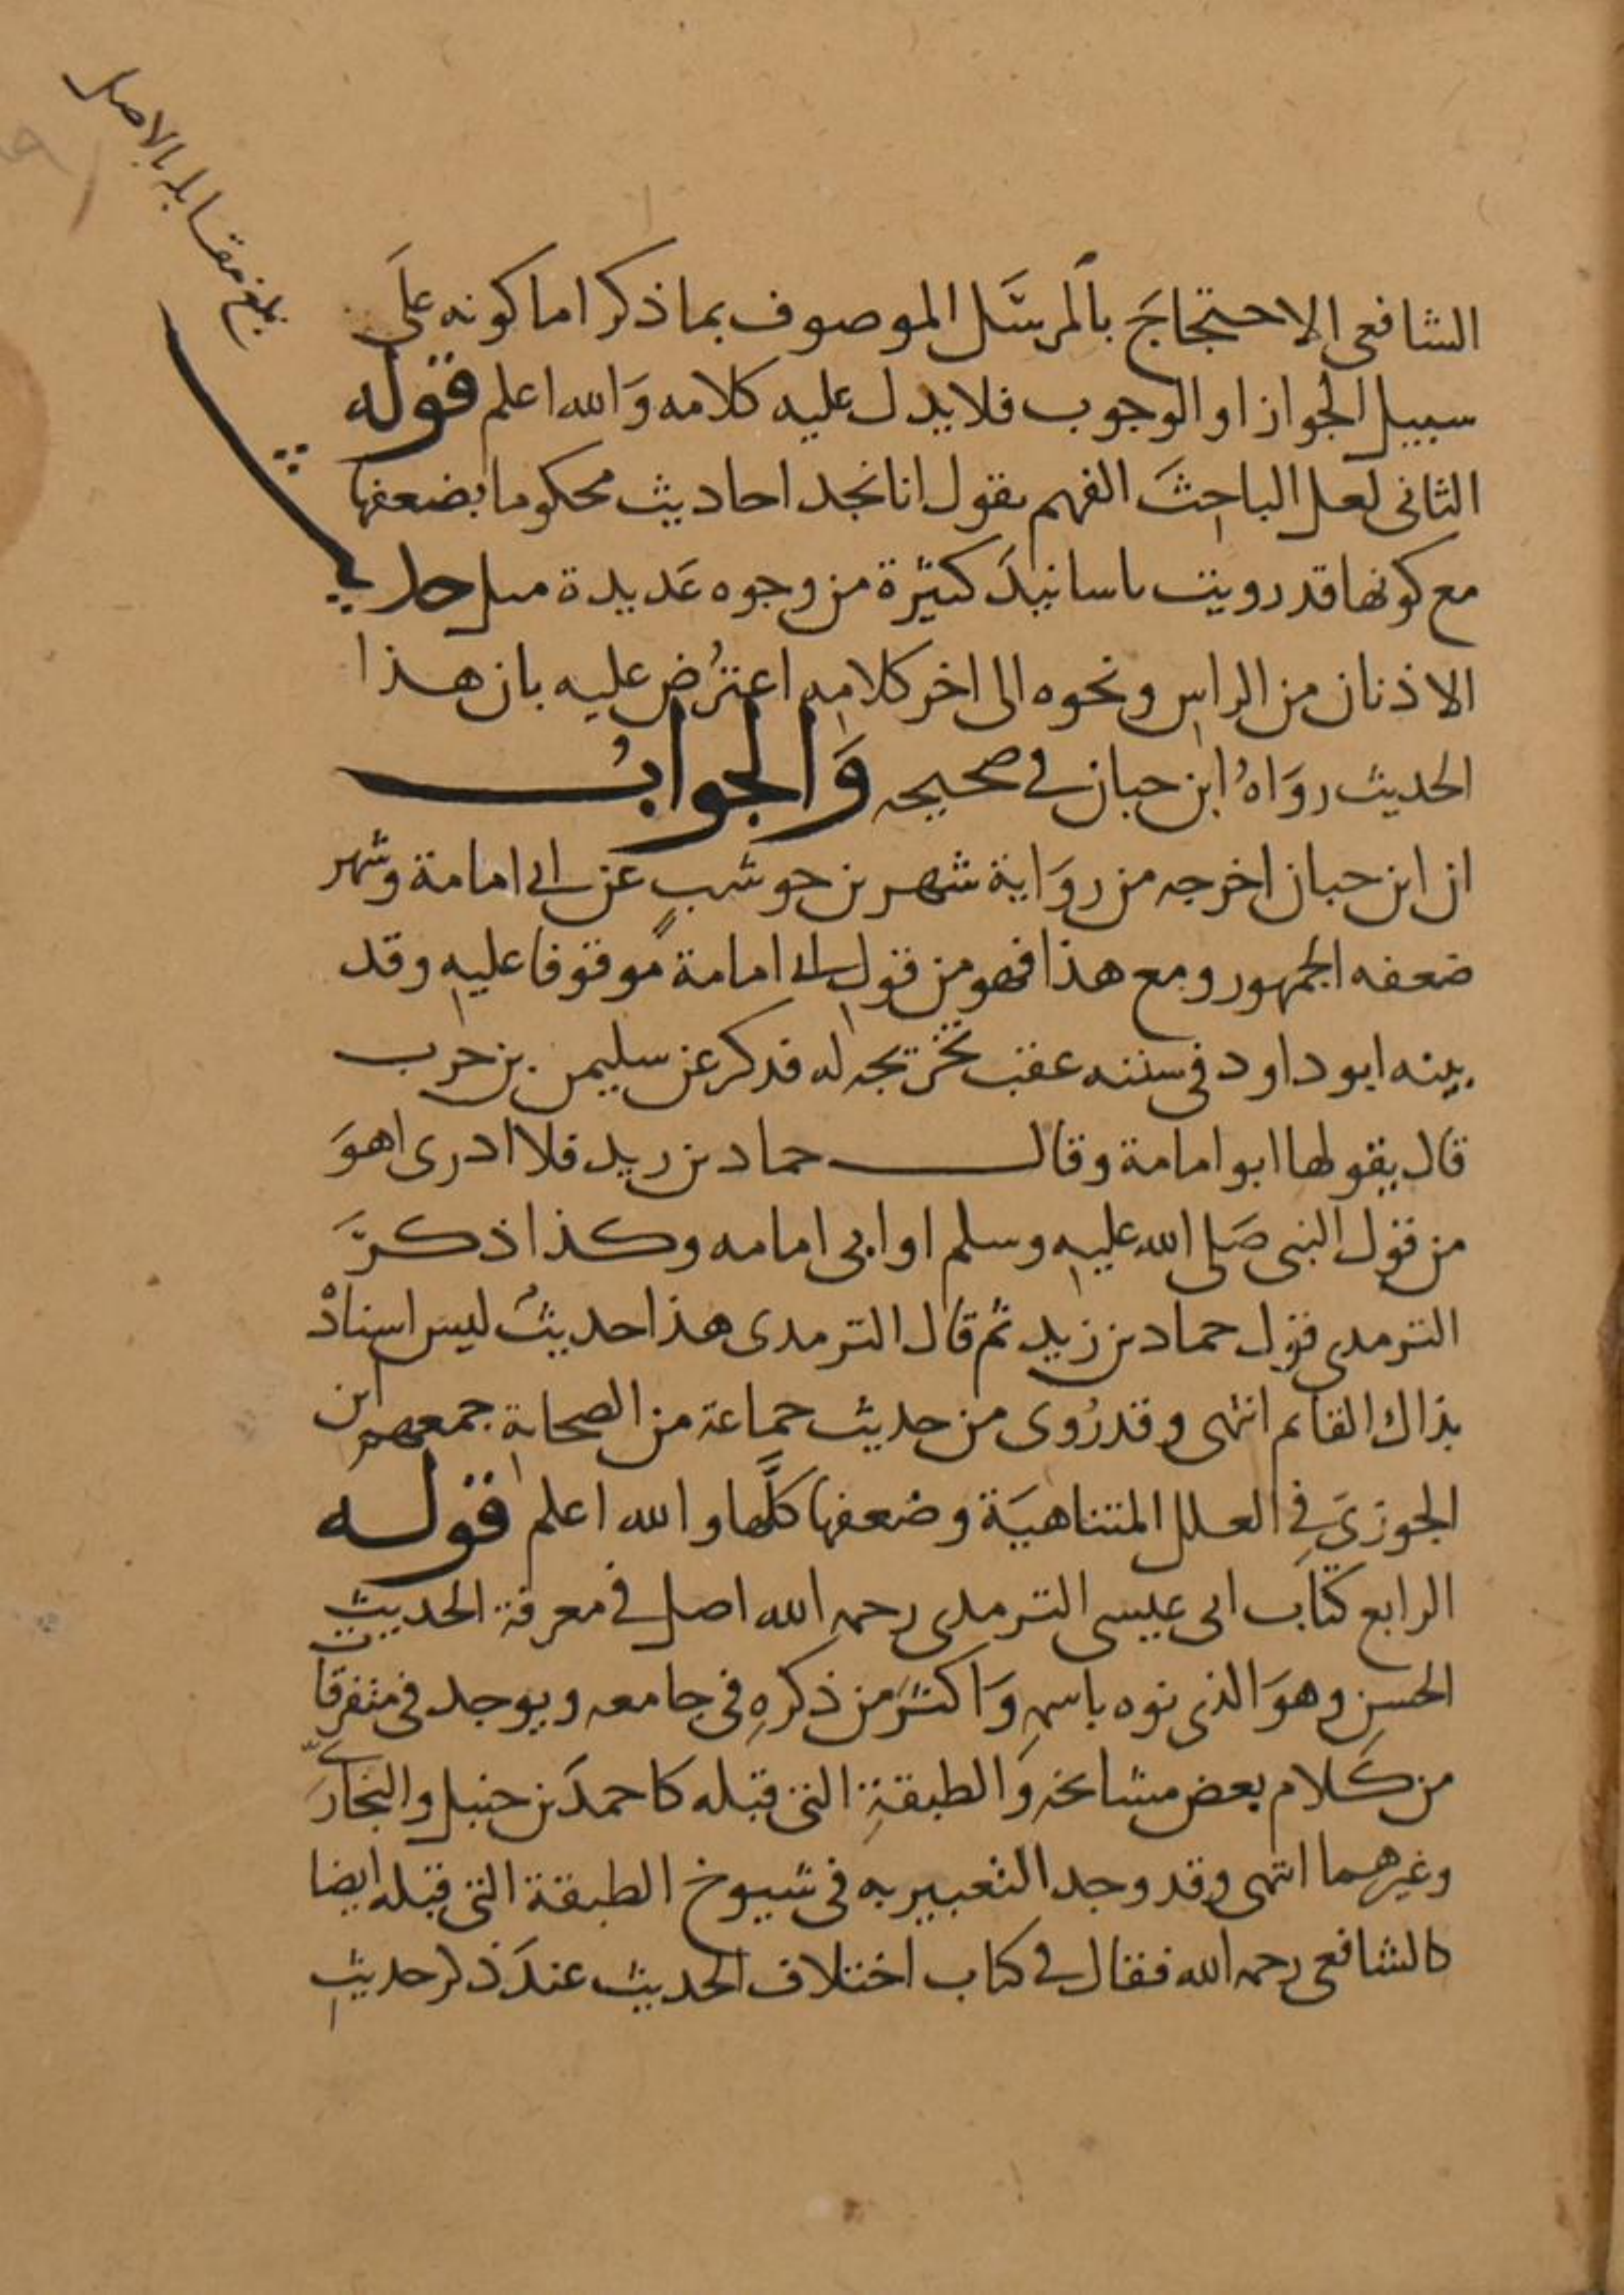 بلغ مقابله بالاصل
الشافعى الاحتجاجَ بالمرسَل الموصوف بما ذكر اما كونه علَى
سبيل الجواز او الوجوب فلا يدل عليه كلامه وَالله اعلم قوله
الثانى لعل الباحثَ الفهم يقول انا نجد احاديث محكوما بضعفها
مع كونها قد رويت باسانيدَ كثيرة من وجوه عَديدة مثل حديث
الاذنان من الراس ونحوه الى اخر كلامه اعترُض عليه بان هذا
الحديث روَاهُ ابن حبان فى صحيحه وَالجوابُ
ان ابن حبان اخرجه من روَاية شهر بن حوشبٍ عن ابى امامة وشهر
ضعفه الجمهور ومع هذا فهو من قول ابى امامة موقوفا عليه وقد
بينه ابو داود فى سننه عقب تخريجه له فذكر عن سليمن بن حرب
قال يقولها ابو امامة وقال حماد بن زيد فلا ادرى اهوَ
من قول النبى صَلى الله عليه وسلم او ابى امامه وكذا ذكرَ
الترمدى قول حماد بن زيد ثم قال الترمدى هذا حديثٌ ليس اسنادْ
بذاك القايم انتهى وقد رُوى من حديث جماعة من الصحابة جمعهم ابن
الجوزىَ فِى العلل المتناهيَة وضعفها كلَّها والله اعلم قوله
الرابع كتاب ابى عيسى الترمدى رحمه الله اصل فى معرفة الحديث
الحسن وهوَ الذى نوه باسمه وَاكثرَ من ذكرهِ فى جامعه ويوجد فى متفرقات
من كَلام بعض مشايخه وَالطبقةِ التى قبله كاحمدَ بن حنبل والبخارىّ
وغيرهما انتهى وقد وجد التعبير به فى شيوخ الطبقة التى قبله ايضا
كالشافعى رحمه الله فقال فى كتاب اختلاف الحديث عندَ ذكر حديثِ